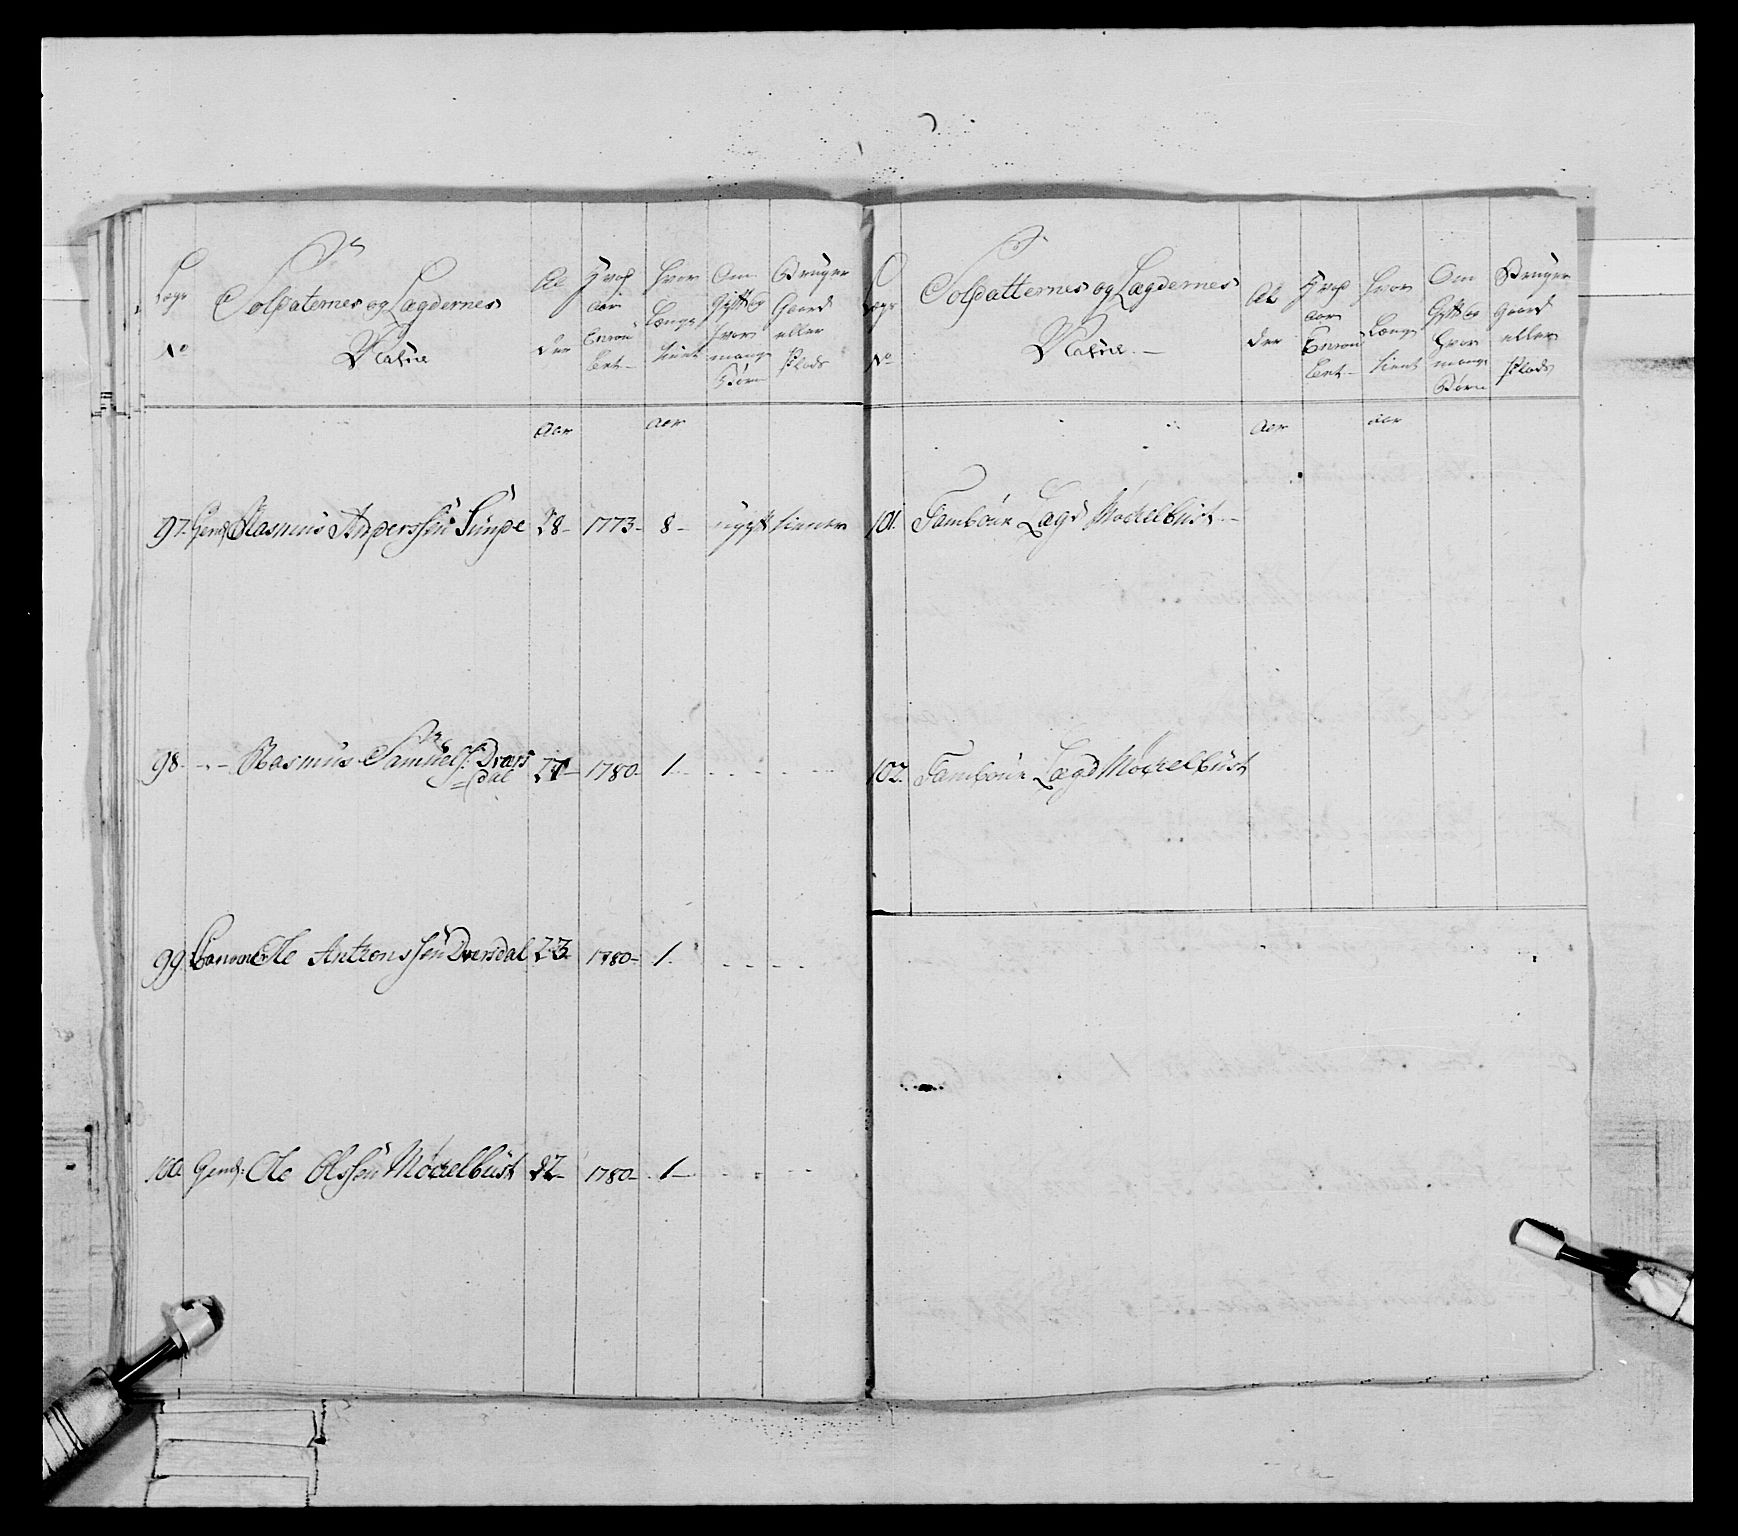 Lægs
No
Soldaternes og Lægdernes
Nafne
Al
der
Hvad
aar
Enrou
leert
Hvor
Længe
tient
Om
Gift og
hvor
mange
Børn
Bruger
Gaard
eller
Plads
Aar
aar
97. Gend Rasmus Anderssøn Sunde 28- 1773- 8- ugift tiener
98. - - Rasmus Samuels: Dravs
dal 21- 1780- 1.
99. Ole Antzonssøn Dversdal 23 1780- 1.
100. Gend: Ole Olssøn Möckelbust 22- 1780- 1-
Lægs
No
Soldatternes og Lægdernes
Nafne.
Al
der
Hvad
aar
Enrou
leert
Hvor
Længe
tient
Om
Gift og
hvor
mange
Børn
Bruger
Gaard
eller
Plads
Aar
aar
101. Tambour Lægd Möckelbust
102. Tambour Lægd Möckelbust